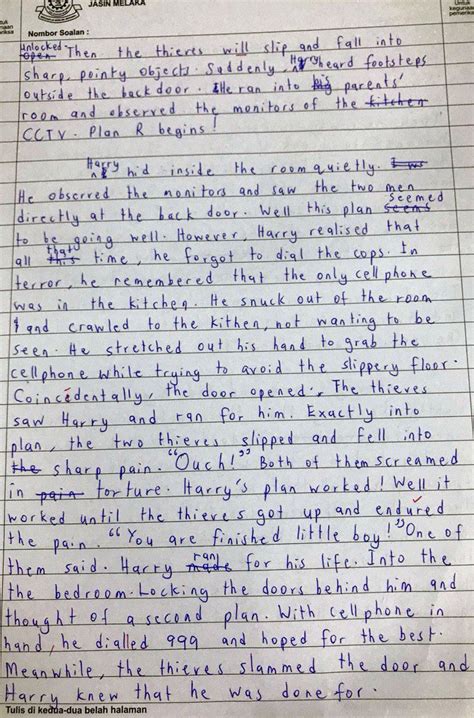 JASIN MELAKA
Nombor Soalan :
unlocked
open Then the thieves will slip and fall into
sharp, pointy objects. Suddenly, Harry heard footsteps
outside the back door. He ran into his parents'
room and observed the monitors of the kitchen
CCTV. Plan R begins!
Harry hid inside the room quietly. I was
He observed the monitors and saw the two men
directly at the back door. Well this plan seems seemed
to be going well. However, Harry realised that
all this that time, he forgot to dial the cops. In
terror, he remembered that the only cell phone
was in the kitchen. He snuck out of the room
and crawled to the kithen, not wanting to be
seen. He stretched out his hand to grab the
cellphone while trying to avoid the slippery floor.
Coincedentally, the door opened. The thieves
saw Harry and ran for him. Exactly into
plan, the two thieves slipped and fell into
the sharp pain. "Ouch!" Both of them screamed
in pain torture. Harry's plan worked! Well it
worked until the thieves got up and endured
the pain. "You are finished little boy!" One of
them said. Harry made ran for his life. Into the
the bedroom. Locking the doors behind him and
thought of a second plan. With cellphone in
hand, he dialled 999 and hoped for the best.
Meanwhile, the thieves slammed the door and
Harry knew that he was done for.
Tulis di kedua-dua belah halaman